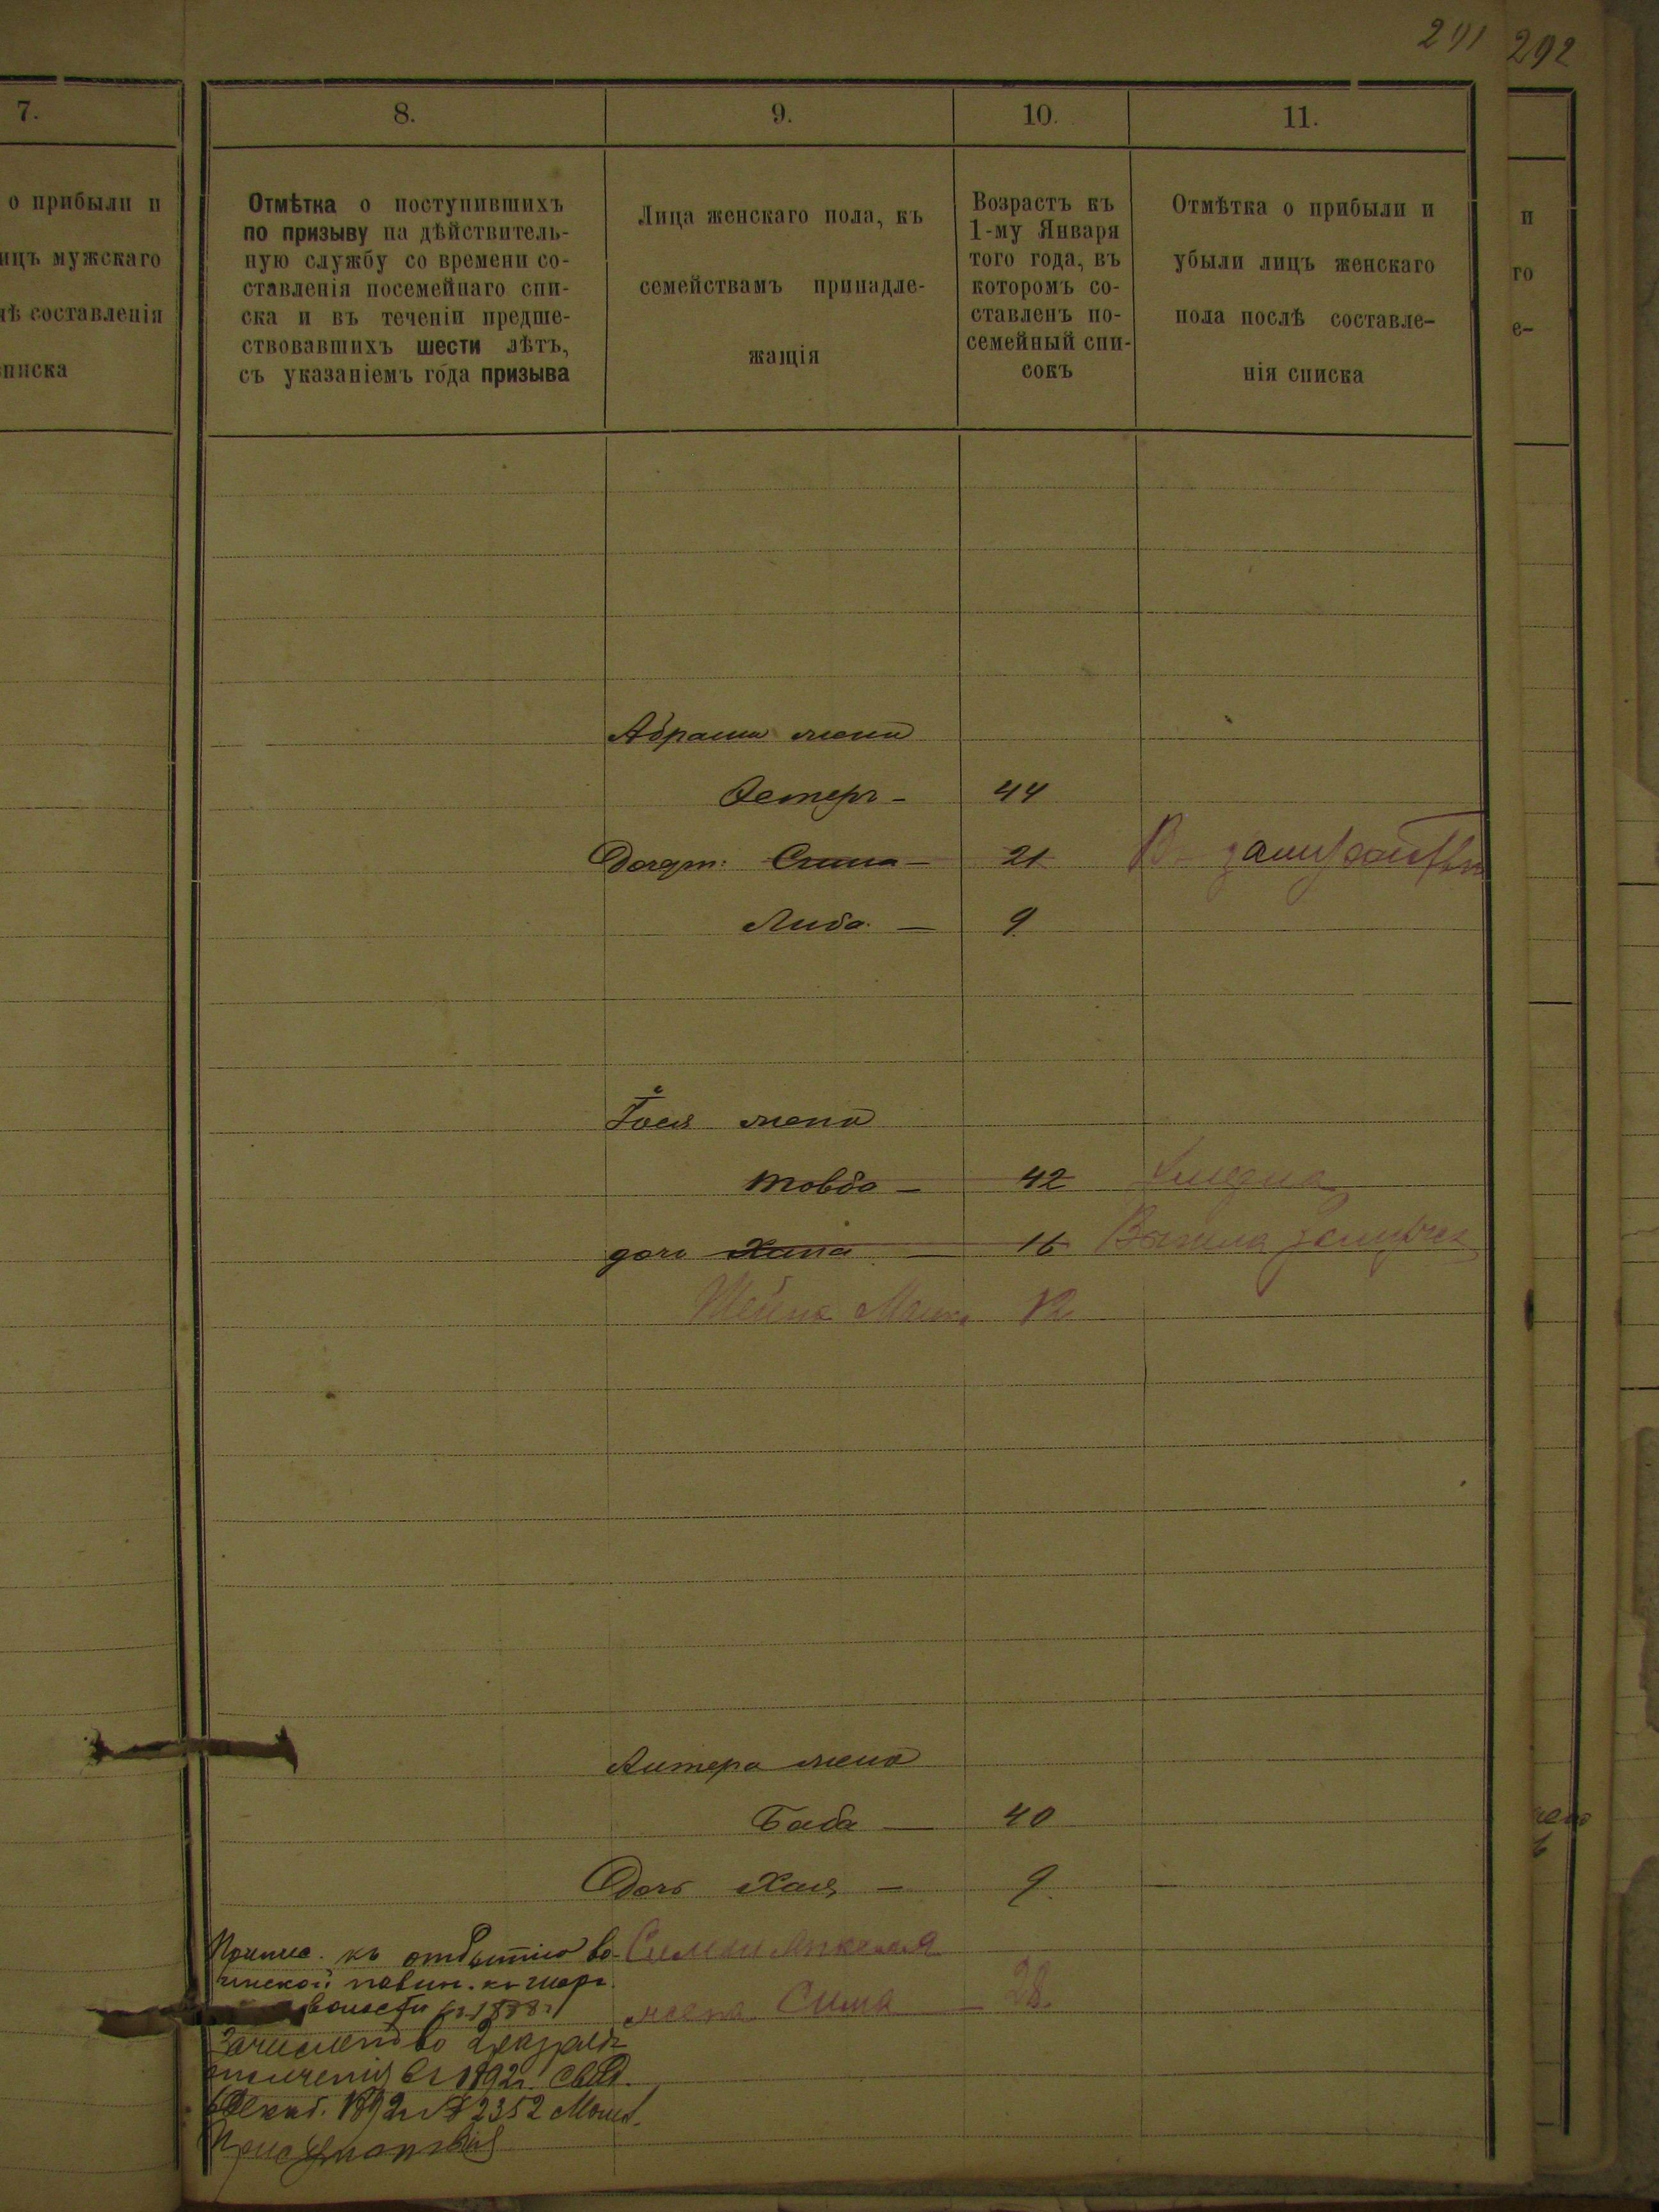 291 292
7. 8. 9. 10. 11.
о прибыли и
ицъ мужскаго
лѣ составленія
списка
Отмѣтка о поступившихъ
по призыву на дѣйствитель-
ную службу со времени со-
ставленія посемейнаго спи-
ска и въ теченіи предше-
ствовавшихъ шести лѣтъ,
съ указаніемъ года призыва
Лица женскаго пола, къ
семействамъ принадле-
жащія
Возрастъ къ
1-му Января
того года, въ
которомъ со-
ставленъ по-
семейный спи-
сокъ
Отмѣтка о прибыли и
убыли лицъ женскаго
пола послѣ составле-
нія списка
и
го
е-
Абрама жена
Естеръ - 44
Дочери: Сима - 21 В замужествѣ
Либа - 9
жена
Товба - 42
дочь Хана - 16 Вышла замужъ
Шейна 12
жена
Баба - 40
Дочь Хая - 9
Припис. къ отбытію во-
инской повин. къ
волости въ 1888 г
жена Сима - 28.
Зачисленъ во 2 разрядъ
ополченія въ 1892 г. Свид.
1892 г № 2352